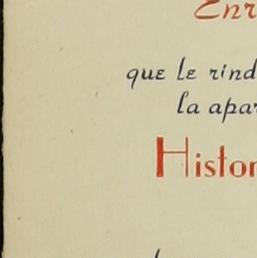 Enr
que le rind
la apar
Histor